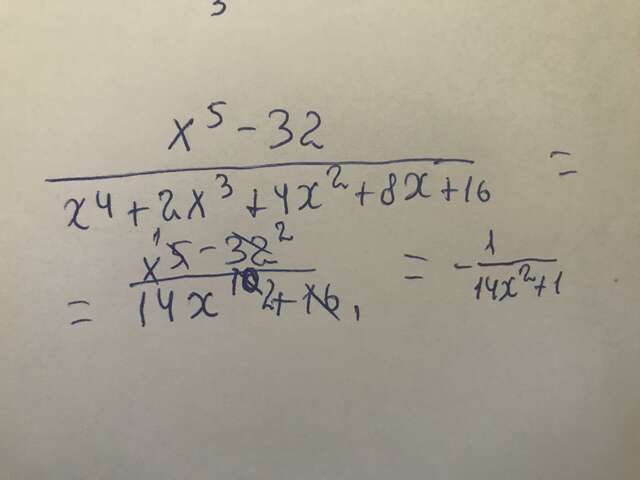 3
x⁵ - 32
x⁴ + 2x³ + 4x² + 8x + 16 =
= x⁵ - 32 / 14x¹⁰ + 16 = - 1 / 14x² + 1